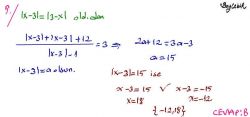 9.) |x-3|=|3-x| old.dan
|x-3|+|x-3|+12 / |x-3|-1 = 3 ⇒ 2a+12=3a-3
a=15
|x-3|=a olsun.
|x-3|=15 ise
x-3=15 ✓ x-3=-15
x=18 x=-12
{-12,18}
CEVAP:B